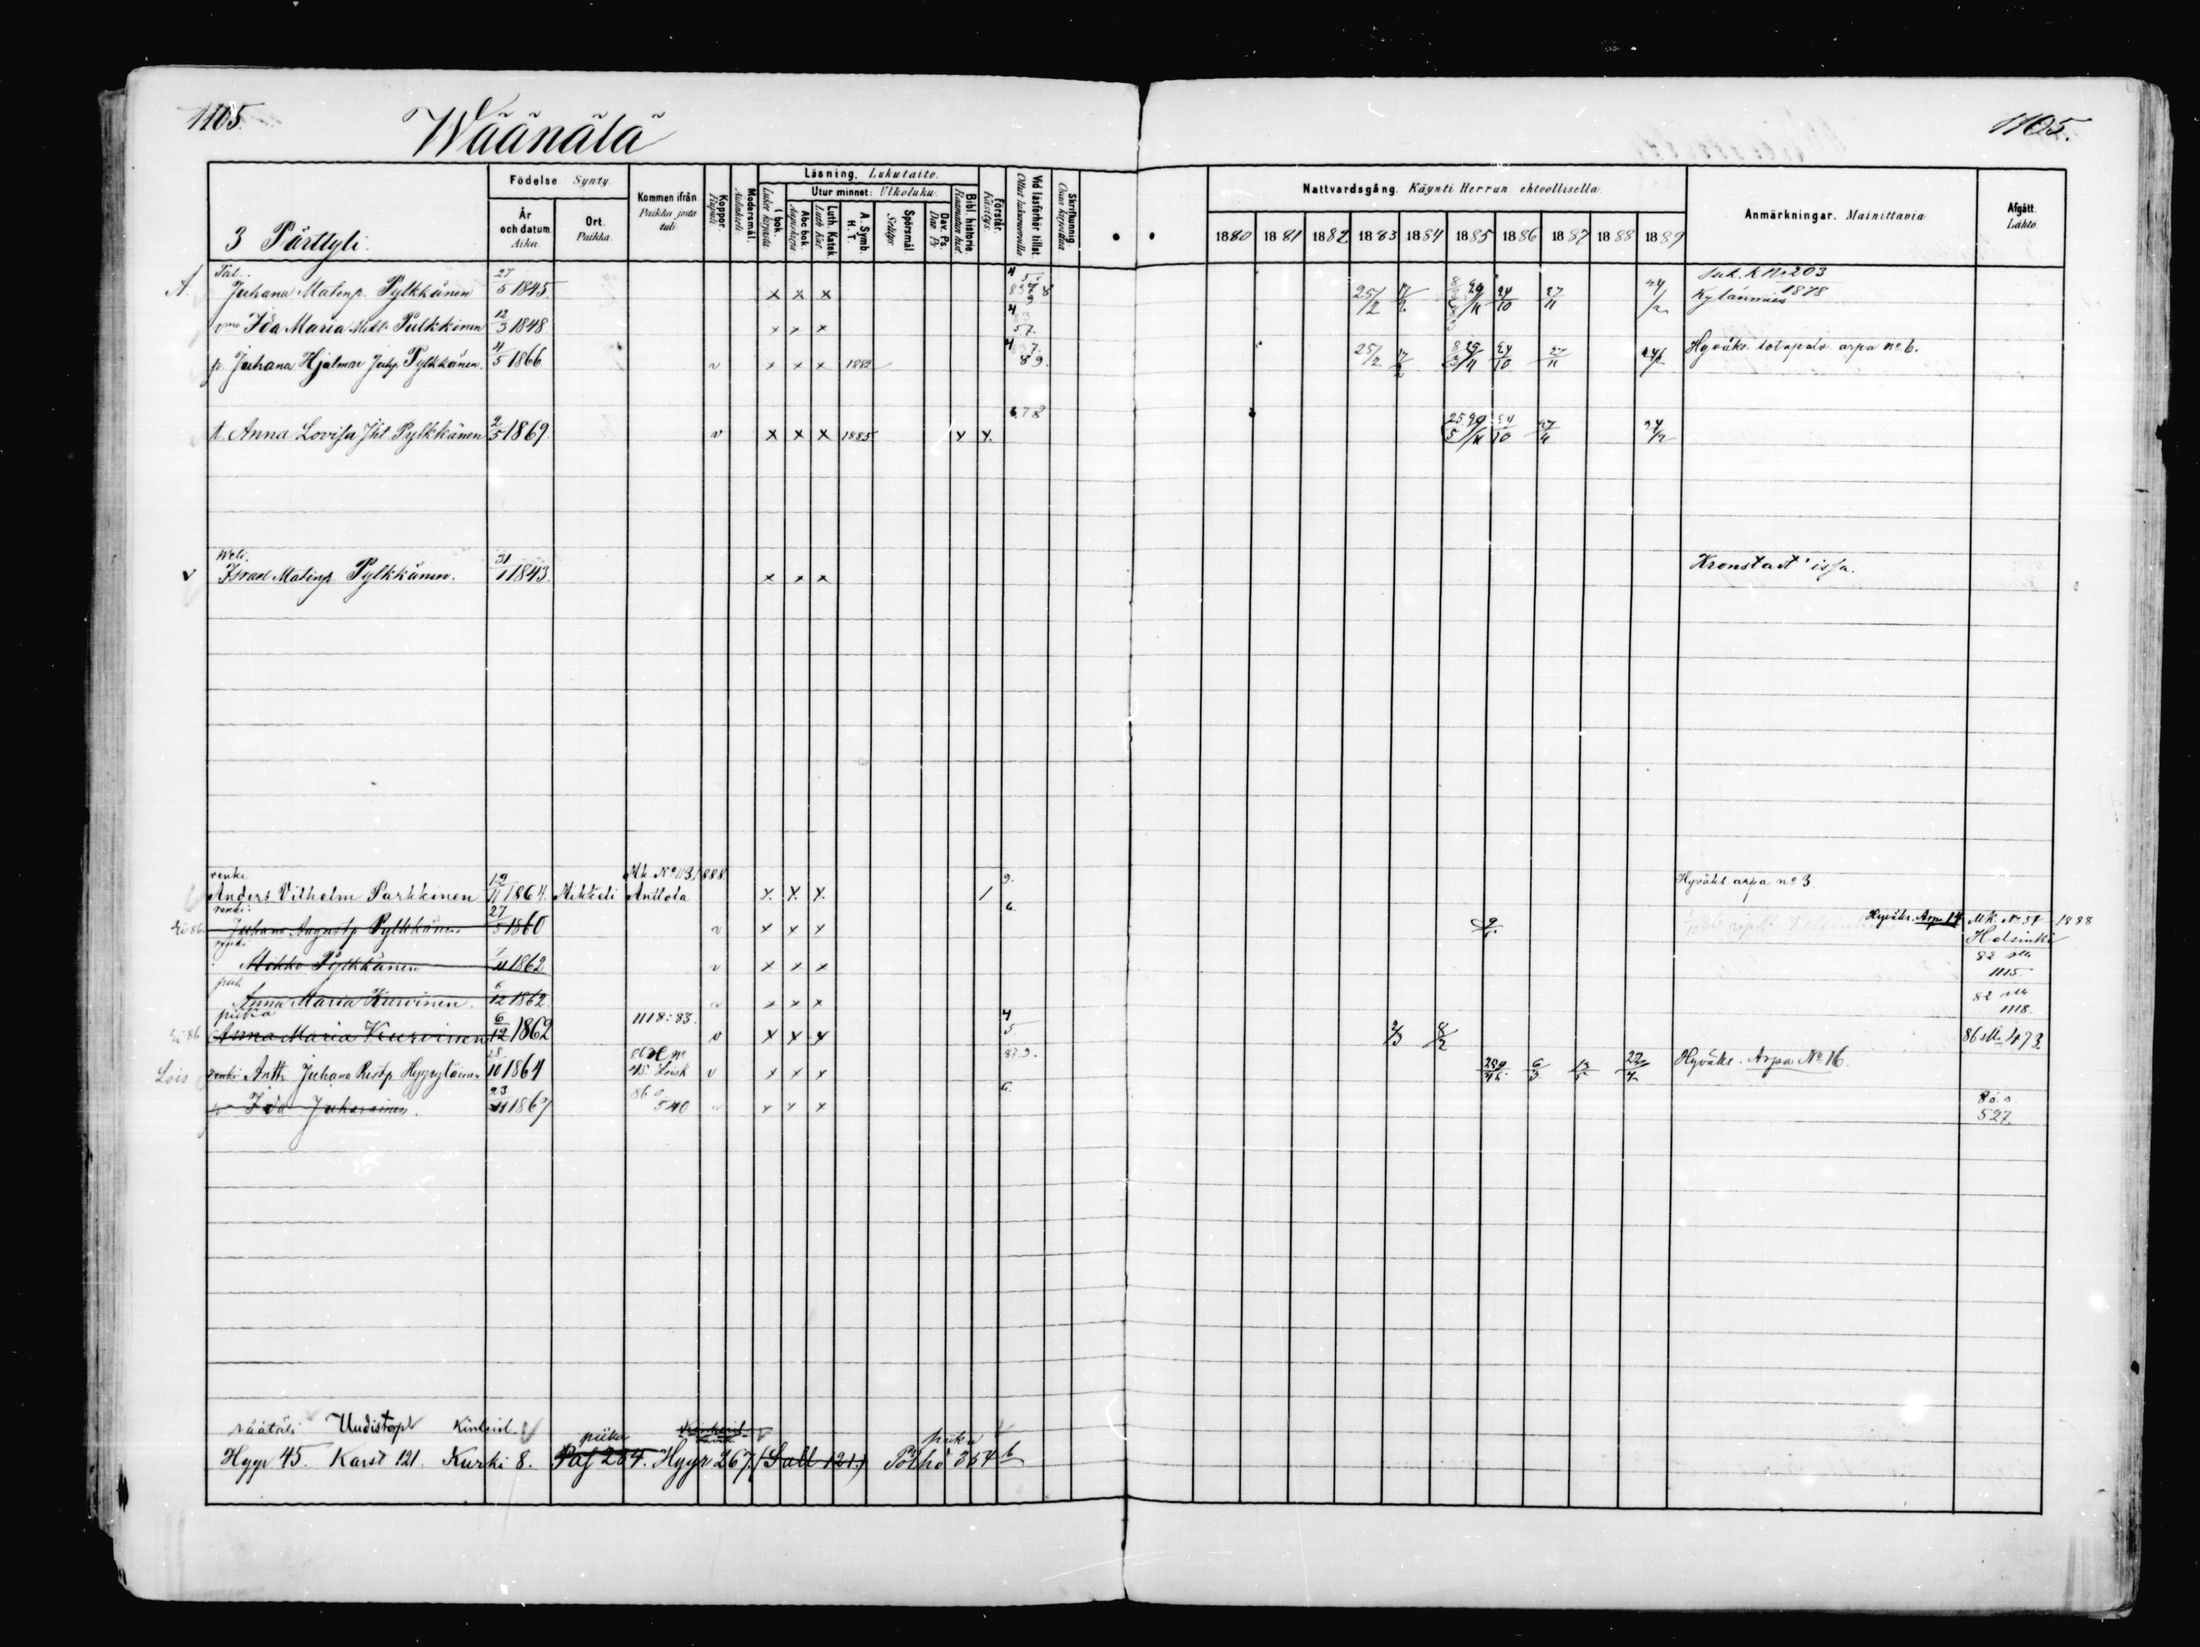 1105.
Wäänälä
1105.
3 Pärttyli.
Födelse. Synty.
År och datum. Aika.
Ort. Paikka.
Kommen ifrån. Paikka josta tuli
Koppor. Rupuli
Modersmål. Äidinkieli
Läsning. Lukutaito.
Luther. i bok.
Utur minnet: Ulkoluku.
Abc bok. Aapiskirja
Luth. Katek. Luth. Kat
A. Symb. H. T.
Spörsmål. Selitys.
Dav. Ps. Dav. Ps
Bibl. historie. Raamatun hist.
Förstår. Käsitys.
Vid läsförhör tillst. Ollut lukuvuorolla
Skrifkunnig. Osaa kirjoittaa
Nattvardsgång. Käynti Herran ehtoollisella.
1880 1881 1882 1883 1884 1885 1886 1887 1888 1889
Anmärkningar. Mainittavia
Afgått. Lähtö.
A. Tal. Juhana Matinp. Pylkkänen 27/5 1845. x x x 25/2 24/10 27/11
No 203 1878
vmo Ida Maria Pulkkinen 12/3 1848 x x x
p. Juhana Hjalmar Juhp Pylkkänen. 4/5 1866 v x x x 1882 25/2 24/10 27/11 Hyväks. arpa no 6.
t. Anna Lovisa Jht Pylkkänen 2/5 1869. v x x x 1885 x x. 6 7 8 24/10 27/11
v Weli. Israel Matinp. Pylkkänen. 31/1 1843. x x x Kronstadt'issa.
renki Anders Vilhelm Parkkinen 19/11 1864. Mikkeli Mk. No 113/1888 Anttola x. x. x. 9. Hyväks arpa no 3
renki: Juhana Augustp Pylkkänen 27/5 1860 v x x x 6. Hyväks. Arpa 14 Mk. No 57 1888 Helsinki
renki Mikko Pylkkänen 1862 v x x x 82 siv 1115.
piik. Anna Maria Kurvinen. 6/12 1862. v x x x 82 siv 1118.
piika Anna Maria Kurvinen 6/12 1862 1118: 83. v x x x 4 5. 2/3 8/2 86 siv 473.
Lois renki Antti Juhana Ristp. Hyyryläinen 28/10 1864 45. Loisk v x x x 87.9. 6/3 Hyväks. Arpa No 16
p Ida Juhanainen. 23/11 1867 86 540 v x x x 6. 527.
räätäli Uudistapl Kinkeril. piika piika
Hyyr 45. Karst 121. Kurki 8. Paf 284. Hyyr 267. (Sall 121.) Pörhö 354 b